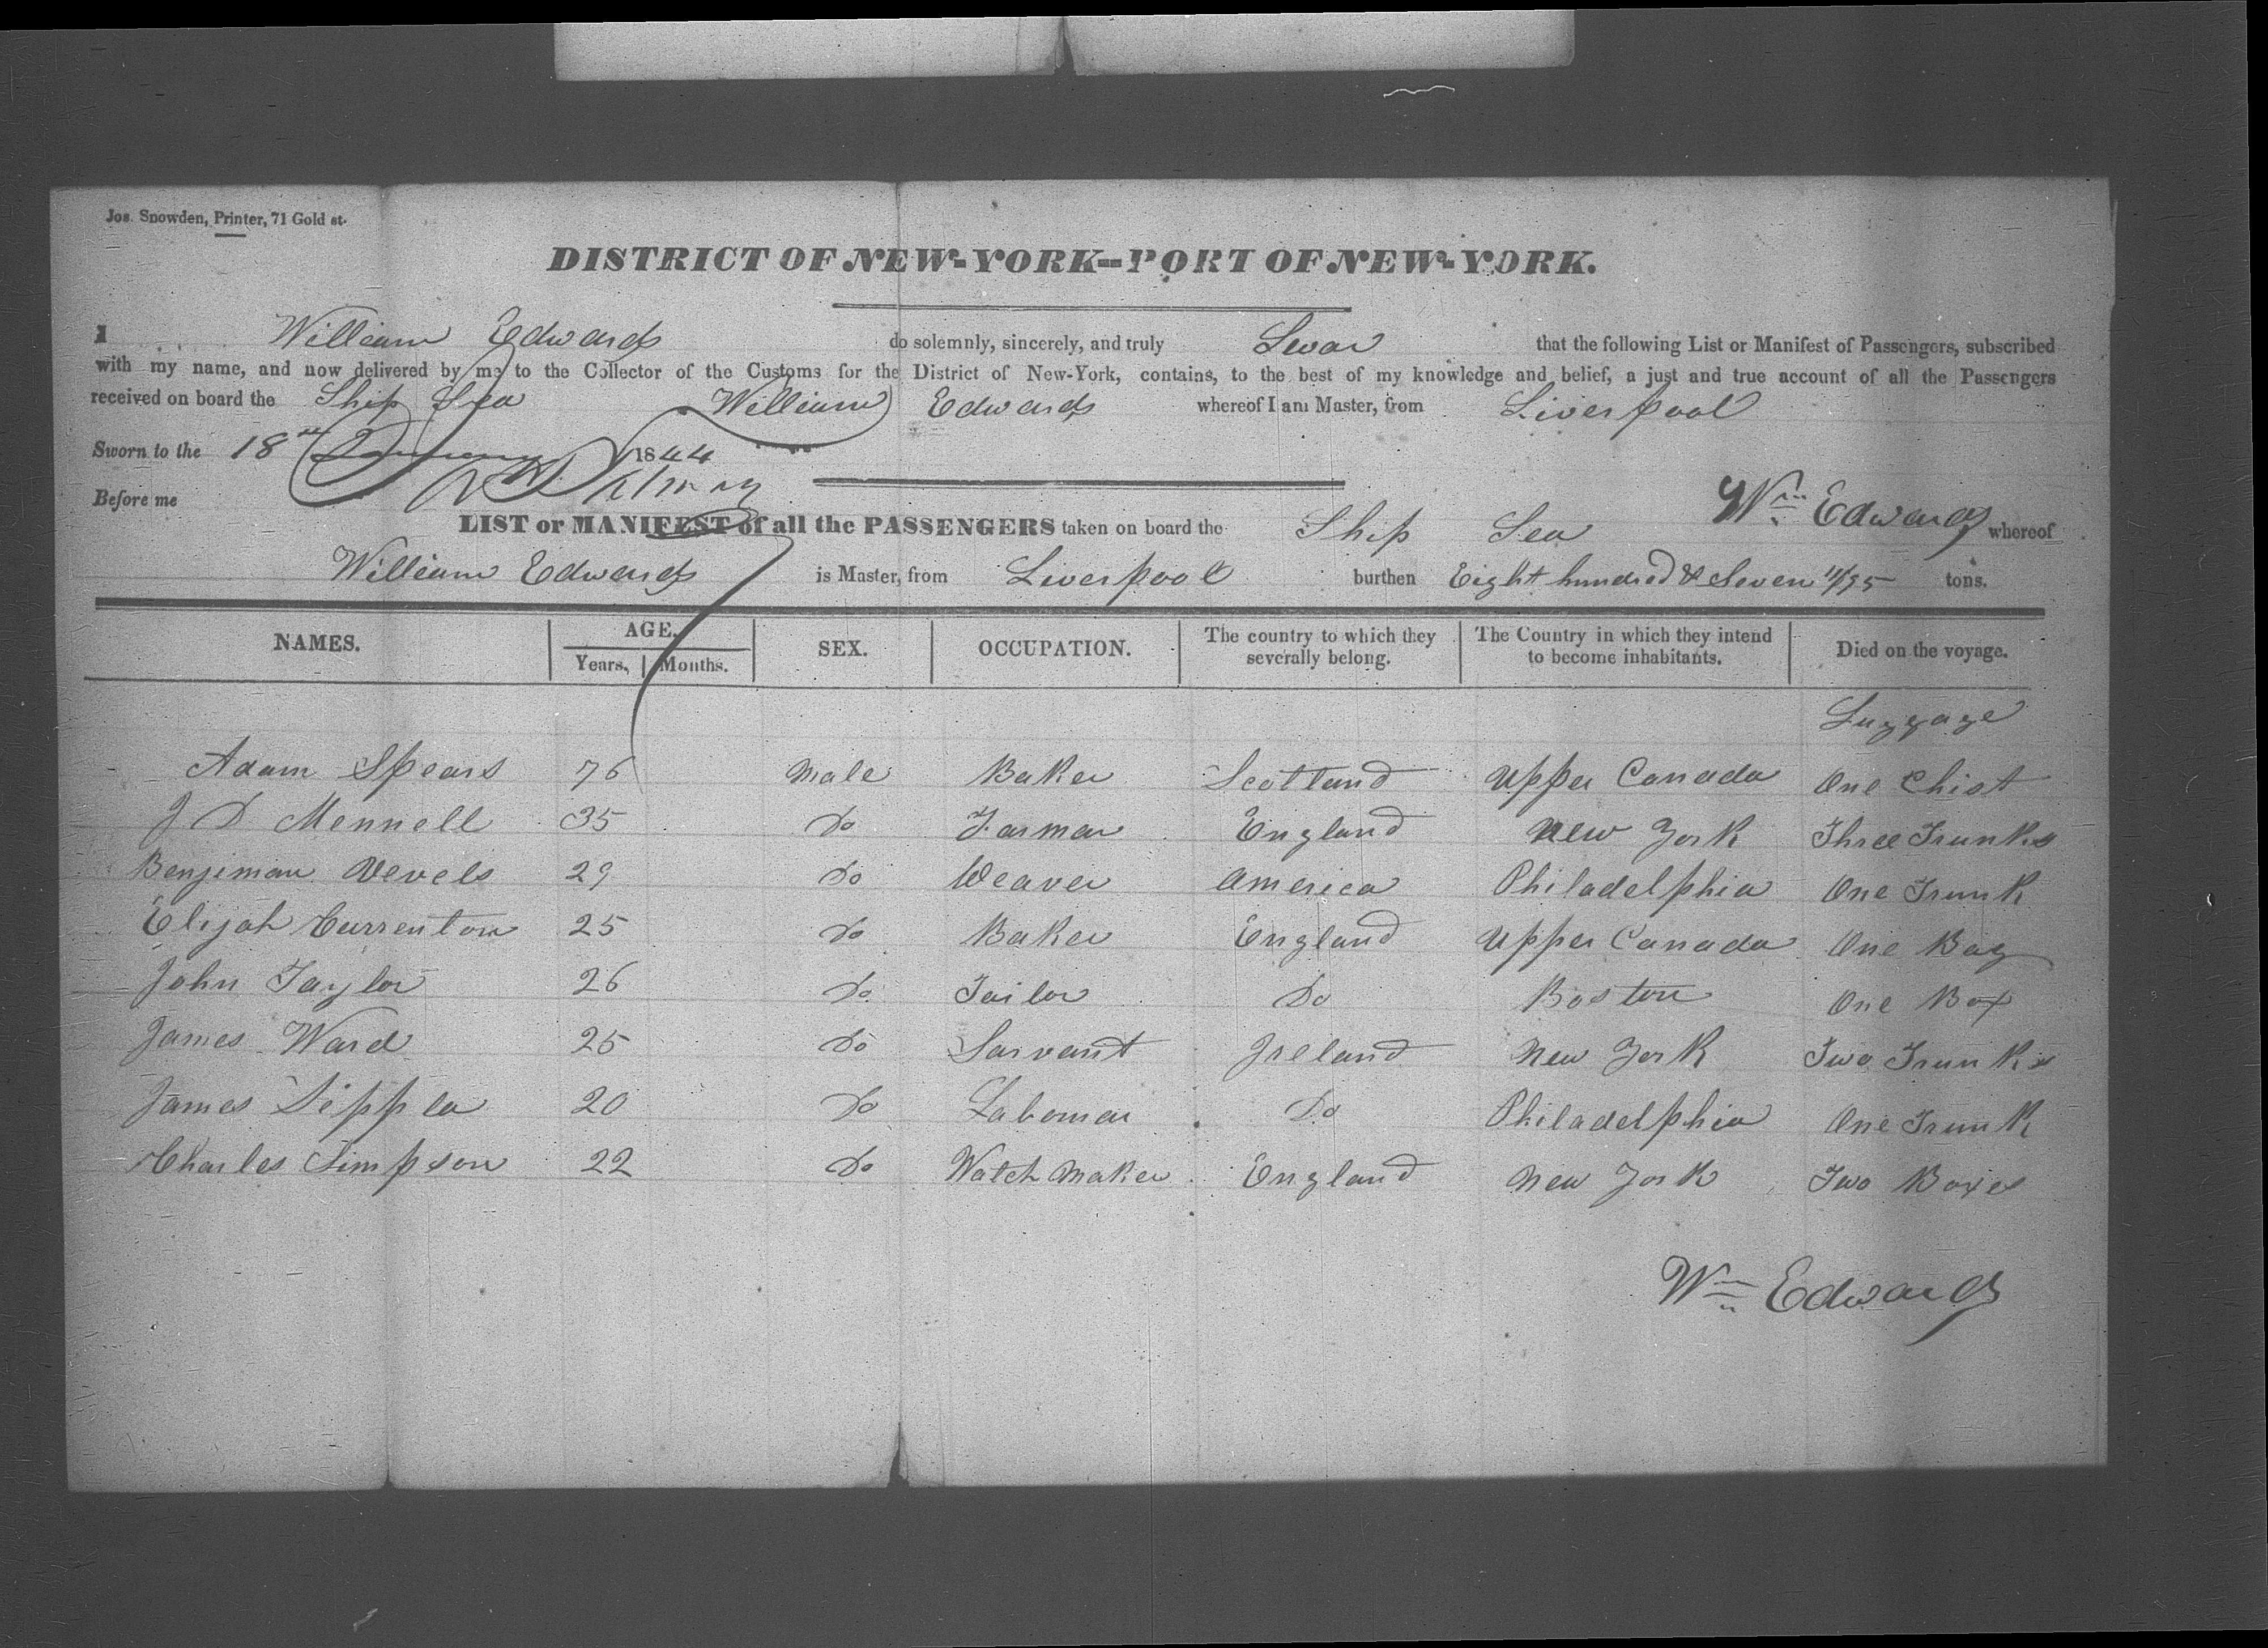 Jos. Snowden, Printer, 71 Gold st.
DISTRICT OF NEW-YORK--PORT OF NEW-YORK.
I William Edwards do solemnly, sincerely, and truly Swar that the following List or Manifest of Passengers, subscribed
with my name, and now delivered by me to the Collector of the Customs for the District of New-York, contains, to the best of my knowledge and belief, a just and true account of all the Passengers
received on board the Ship Sea William Edwards whereof I am Master, from Liverpool
Sworn to the 18 1844
Before me
Wm Edwards
LIST or MANIFEST of all the PASSENGERS taken on board the Ship Sea whereof
William Edwards is Master, from Liverpool burthen Eight hundred & Seven 11/95 tons.
NAMES. AGE. Years, Months. SEX. OCCUPATION. The country to which they severally belong. The Country in which they intend to become inhabitants. Died on the voyage.
Luggage
Adam Spears 76 Male Baker Scotland Upper Canada One Chist
J D Mennell 35 Do Farmar England New York Three Trunks
Benjiman Nevels 29 Do Weaver America Philadelphia One Trunk
Elijah Currenton 25 Do Baker England Upper Canada One Bag
John Taylor 26 Do Tailor Do Boston One Box
James Ward 25 Do Sarvant Ireland New York Two Trunks
James 20 Do Do Philadelphia One Trunk
Charles Simpson 22 Do Watch Maker England New York Two Boxes
Wm Edwards